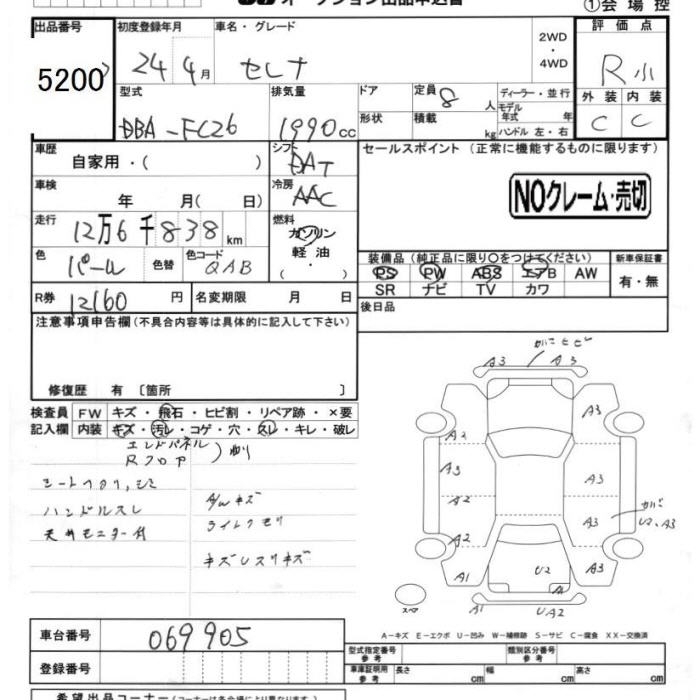 ①会場控
出品番号 初度登録年月 車名・グレード 2WD・4WD 評価点
5200 24年4月 セレナ R小
型式 排気量 ドア 定員 8人 ディーラー・並行 外装 内装
DBA-FC26 1990cc 形状 積載 kg モデル年式 年 ハンドル左・右 C C
車歴 自家用・( ) シフト DAT セールスポイント(正常に機能するものに限ります)
車検 年 月( 日) 冷房 AAC NOクレーム・売切
走行 12万6千838km 燃料 ガソリン 軽油 ( ・ )
色 パール 色替 色コード QAB 装備品(純正品に限り○をつけてください) 新車保証書
PS PW ABS エアB AW 有・無
SR ナビ TV カワ
R券 12160円 名変期限 月 日 後日品
注意事項申告欄(不具合内容等は具体的に記入して下さい)
修復歴 有〔箇所 〕
検査員 FW キズ・飛石・ヒビ割・リペア跡・×要
記入欄 内装 キズ・汚レ・コゲ・穴・スレ・キレ・破レ
エンドパネル
Rフロア
ハンドルスレ
天井モニター付
A/Wキズ
ライトクモリ
A3 A3
A3
A2
A3 A3
A2 A3 U2、A3
A2 A3
A1 U2 A1
スペア A1 UA2
A-キズ E-エクボ U-凹み W-補修跡 S-サビ C-腐食 XX-交換済
車台番号 069905
型式指定番号 参考 類別区分番号 参考
登録番号 車庫証明用 参考 長さ cm 幅 cm 高さ cm
希望出品コーナー